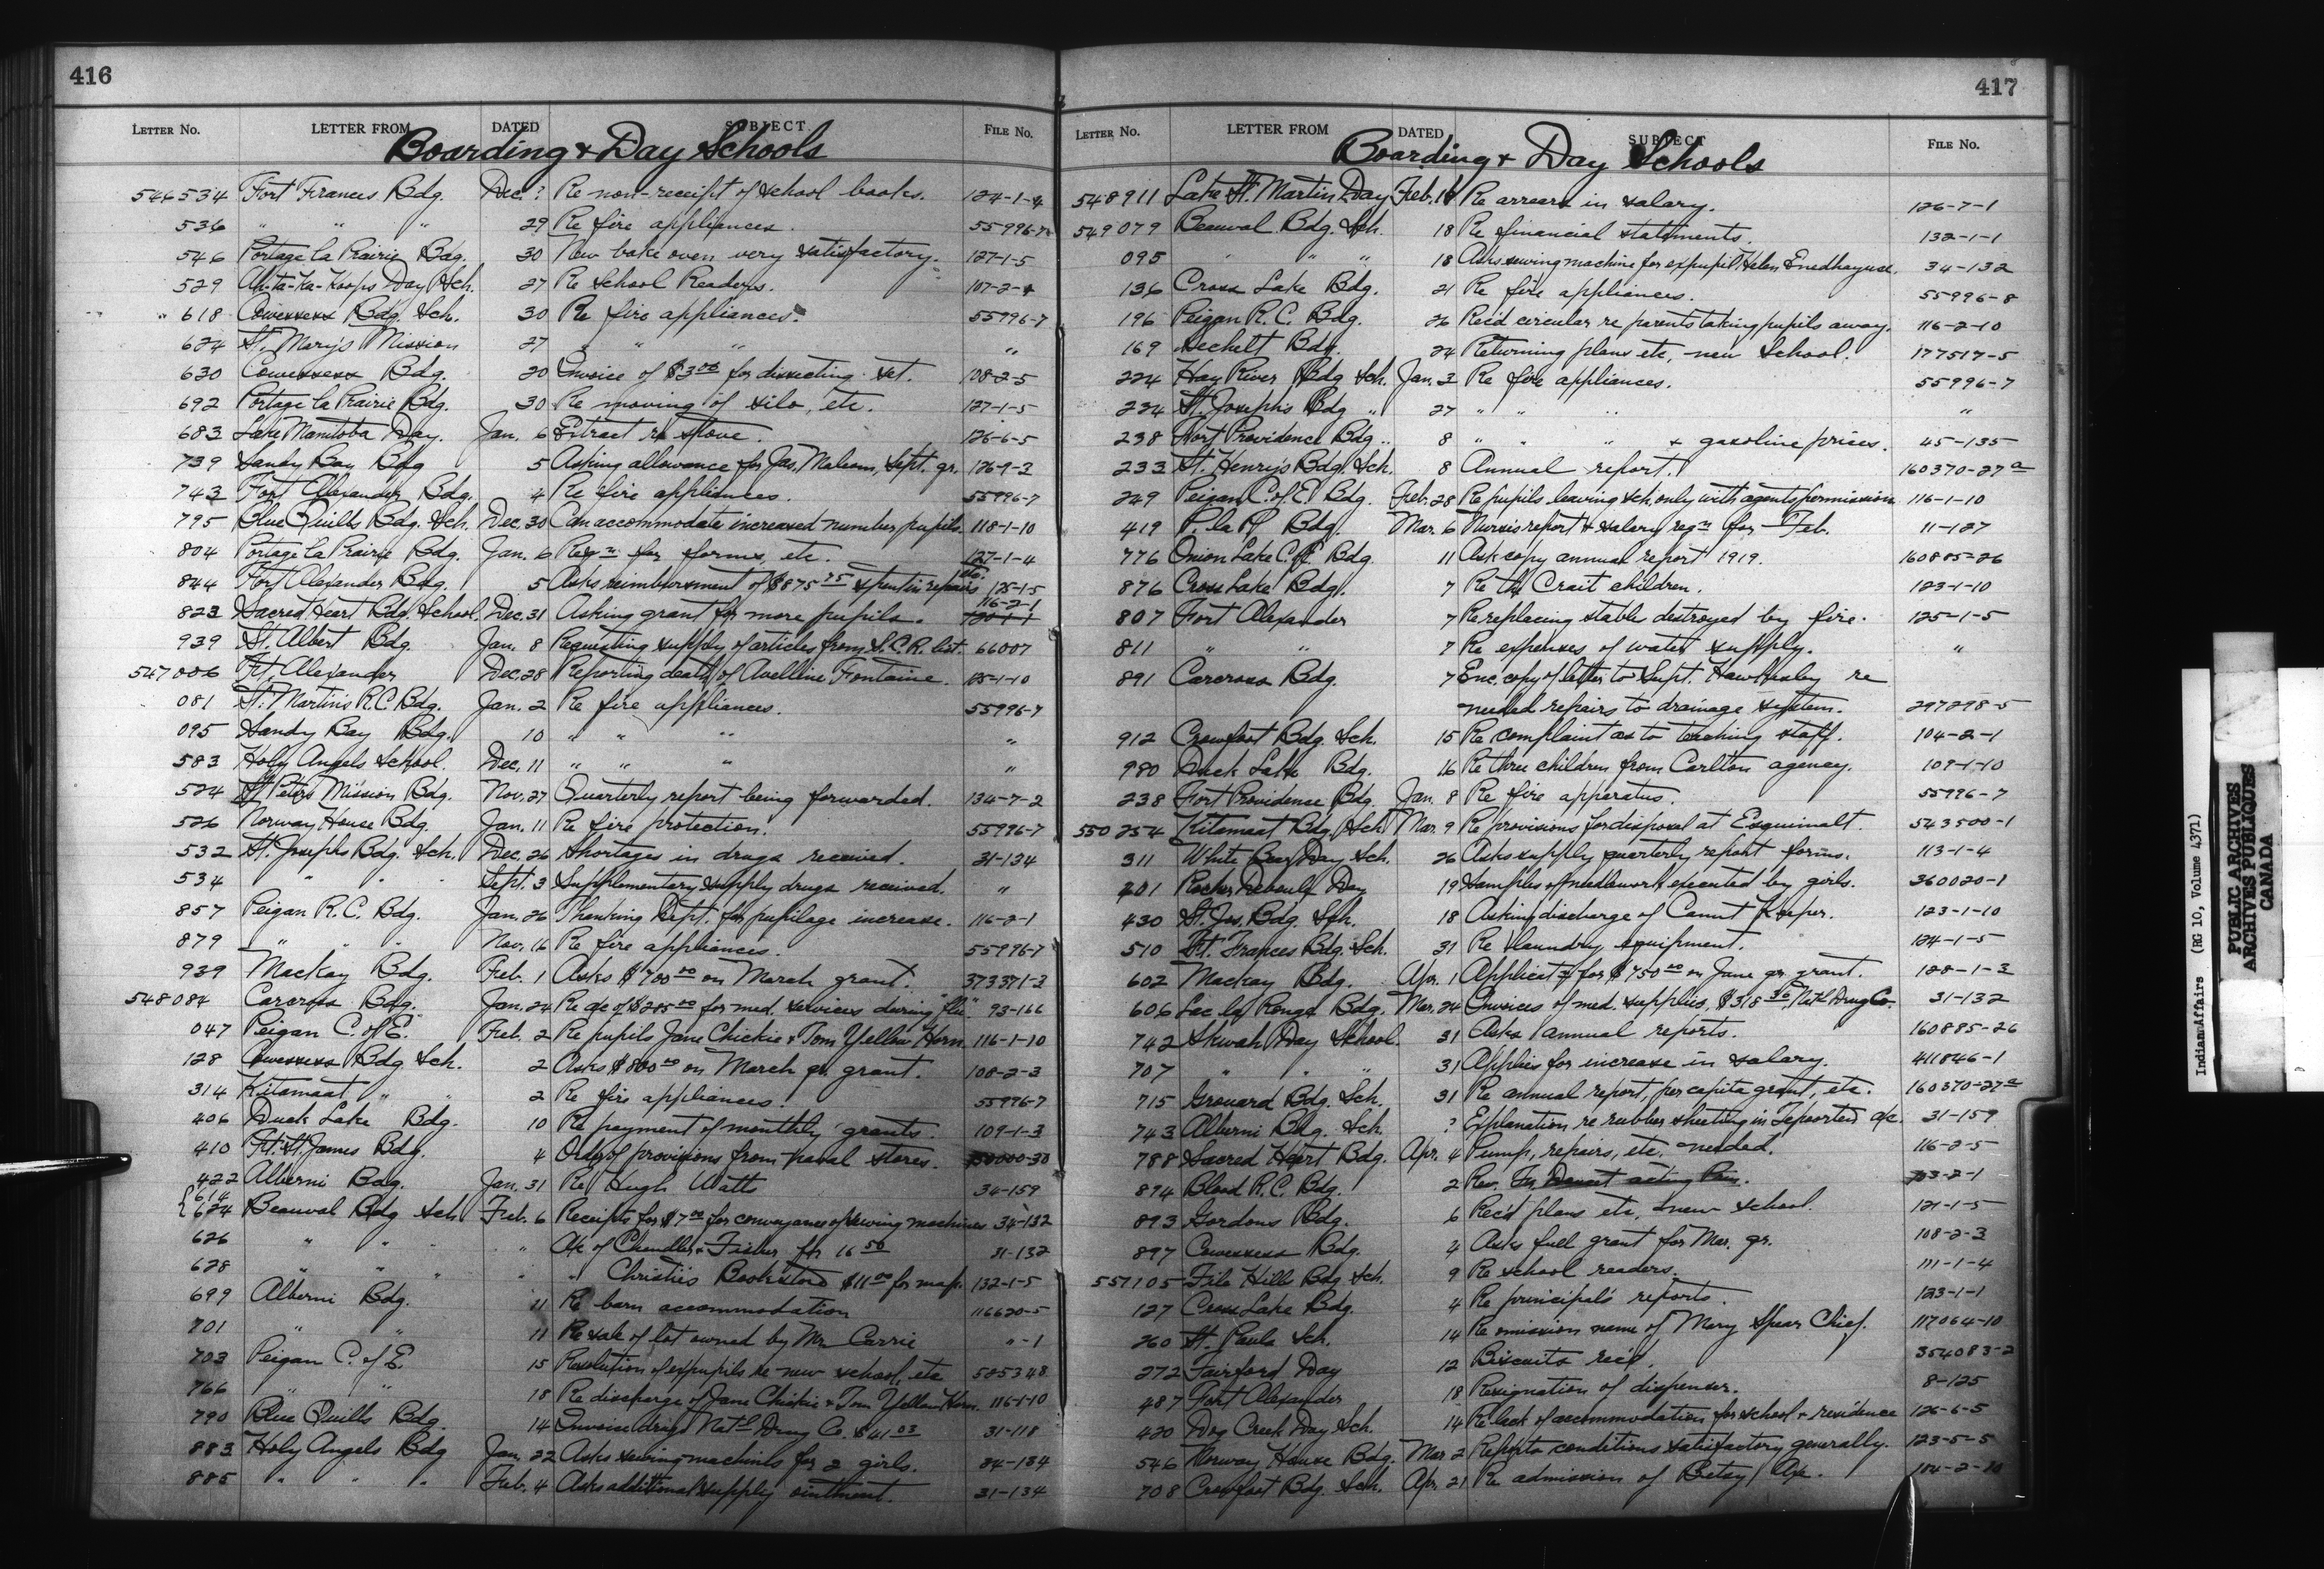 416
LETTER No. LETTER FROM DATED SUBJECT FILE No.
Boarding & Day Schools
546534 Fort Frances Bdg. Dec. ? Re non-receipt of school books. 124-1-4
536 " " " 29 Re fire appliances. 55996-7
546 Portage la Prairie Bdg. 30 New bake oven very satisfactory. 127-1-5
529 Ah-ta-Ka-Koops Day Sch. 27 Re School Readers. 107-2-4
618 Cowessess Bdg. Sch. 30 Re fire appliances. 55996-7
624 St. Mary's Mission 27 " " " "
630 Cowessess Bdg. 20 Invoice of $3.00 for dissecting set. 108-2-5
692 Portage la Prairie Bdg. 30 Re moving of silo, etc. 127-1-5
683 Lake Manitoba Day. Jan. 6 Extract re stove. 126-6-5
739 Sandy Bay Bdg 5 Asking allowance for Jas. Malcom, Sept. qr. 126-9-3
743 Fort Alexander Bdg. 4 Re fire appliances. 55996-7
795 Blue Quills Bdg. Sch. Dec. 30 Can accommodate increased number pupils. 118-1-10
804 Portage la Prairie Bdg. Jan. 6 Reqn for forms, etc. 127-1-4
844 Fort Alexander Bdg. 5 Asks reimbursment of $875.75 spent in repairs 125-1-5
823 Sacred Heart Bdg. School. Dec. 31 Asking grant for more pupils. 116-2-1
939 St. Albert Bdg. Jan. 8 Requesting supply of articles from S.C.R. list. 66007
547006 Ft. Alexander Dec. 28 Reporting death of Avelline Fontaine. 125-1-10
081 St. Martin's R.C. Bdg. Jan. 2 Re fire appliances. 55996-7
095 Sandy Bay Bdg. 10 " " " "
583 Holy Angels School. Dec. 11 " " " "
524 St Peter's Mission Bdg. Nov. 27 Quarterly report being forwarded. 134-7-2
526 Norway House Bdg. Jan. 11 Re fire protection. 55996-7
532 St. Joseph's Bdg. Sch. Dec. 26 Shortages in drugs received. 31-134
534 " " " Sept. 3 Supplementary supply drugs received. "
857 Peigan R.C. Bdg. Jan. 26 Thanking Dept. for pupilage increase. 116-2-1
879 " " " Nov. 16 Re fire appliances. 55996-7
939 Mackay Bdg. Feb. 1 Asks $700.00 on March grant. 373371-3
548084 Carcross Bdg. Jan. 24 Re a/c of $285.00 for med. services during "flu". 93-166
047 Peigan C. of E. Feb. 2 Re pupils Jane Chickie & Tom Yellow Horn. 116-1-10
128 Cowessess Bdg Sch. 2 Asks $800.00 on March qr. grant. 108-2-3
314 Kitamaat " " 2 Re fire appliances. 55996-7
406 Duck Lake Bdg. 10 Re payment of monthly grants. 109-1-3
410 Ft. St. James Bdg. 4 Order of provisions from naval stores.
422 Alberni Bdg. Jan. 31 Re Hugh Watts 34-159
{614
624 Beauval Bdg Sch. Feb. 6 Receipts for $7.00 for conveyance of sewing machines 34-132
626 " " " " A/c of Chandler & Fisher for 16.50 31-132
628 " " " " " Christie's Bookstore $11.00 for map. 132-1-5
699 Alberni Bdg. 11 Re barn accommodation 116620-5
701 " " 11 Re sale of lot owned by Mr. Carrie " -1
703 Peigan C. of E. 15 Resolution of expupils re new school, etc 525348
766 " " 18 Re discharge of Jane Chickie & Tom Yellow Horn. 116-1-10
790 Blue Quills Bdg. 14 Invoice drugs Natl Drug Co. $41.03 31-118
883 Holy Angels Bdg Jan. 22 Asks sewing machines for 2 girls. 34-134
885 " " " Feb. 4 Asks additional supply ointment. 31-134
417
LETTER No. LETTER FROM DATED SUBJECT FILE No.
Boarding & Day Schools
548911 Lake St. Martin Day Feb. 18 Re arrears in salary. 126-7-1
549079 Beauval Bdg. Sch. 18 Re financial statements. 132-1-1
095 " " " 18 Asks sewing machine for expupil Helen 34-132
136 Cross Lake Bdg. 21 Re fire appliances. 55996-8
196 Peigan R.C. Bdg. 26 Rec'd circular re parents taking pupils away. 116-2-10
169 Sechelt Bdg. 24 Returning plans etc, new School. 177517-5
224 Hay River Bdg Sch. Jan. 3 Re fire appliances. 55996-7
234 St. Joseph's Bdg " 27 " " " "
238 Fort Providence Bdg " 8 " " " & gasoline prices. 45-135
233 St. Henry's Bdg. Sch. 8 Annual report. 160370-27a
249 Peigan C. of E. Bdg. Feb. 28 Re pupils leaving sch. only with agents permission. 116-1-10
419 P. la P. Bdg. Mar. 6 Nurse's report & salary reqn for Feb. 11-127
776 Onion Lake C.E. Bdg 11 Ask copy annual report 1919. 160885-26
876 Cross Lake Bdg. 7 Re the Crait children. 123-1-10
807 Fort Alexander 7 Re replacing stable destroyed by fire. 125-1-5
811 " " 7 Re expenses of water supply. "
891 Carcross Bdg. 7 Enc. copy of letter to Supt. Hawksley re
needed repairs to drainage system. 297298-5
912 Crowfoot Bdg. Sch. 15 Re complaint as to teaching staff. 104-2-1
980 Duck Lake Bdg. 16 Re three children from Carlton agency. 109-1-10
238 Fort Providence Bdg. Jan. 8 Re fire apparatus. 55996-7
550254 Kitamaat Bdg. Sch. Mar. 9 Re provisions for disposal at Esquimalt. 543500-1
311 White Bear Day Sch. 26 Asks supply quarterly report forms. 113-1-4
401 Day 19 Samples of needlework executed by girls. 360020-1
430 St. Jos. Bdg. Sch. 18 Asking discharge of Camut Kuper. 123-1-10
510 Ft. Frances Bdg. Sch. 31 Re laundry equipment. 124-1-5
602 Mackay Bdg. Apr. 1 Applicatn for $750.00 on June qr. grant. 128-1-3
606 Lac la Ronge Bdg. Mar. 24 Invoices of med. supplies, $318.30 Natl Drug Co. 31-132
742 Skwah Day School 31 Asks annual reports. 160885-26
707 " " " 31 Applies for increase in salary. 411846-1
715 Grouard Bdg. Sch. 31 Re annual report, per capita grant, etc. 160370-27a
743 Alberni Bdg. Sch. ? Explanation re rubber sheeting in a/c. 31-159
788 Sacred Heart Bdg. Apr. 4 Pump, repairs, etc. needed. 116-2-5
894 Blood R.C. Bdg. 2 Rev. Fr. acting Prin. 103-2-1
893 Gordons Bdg. 6 Rec'd plans etc, new school. 121-1-5
897 Cowessess Bdg. 4 Asks full grant for Mar. qr. 108-2-3
551105 File Hill Bdg Sch. 9 Re school readers. 111-1-4
127 Cross Lake Bdg. 4 Re principal's reports. 123-1-1
260 St. Pauls Sch. 14 Re omission name of Mary Spear Chief. 117064-10
272 Fairford Day 12 Biscuits rec'd. 354083-2
487 Fort Alexander 18 Resignation of dispenser. 8-125
420 Dog Creek Day Sch. 14 Re lack of accommodation for school & residence 126-6-5
546 Norway House Bdg. Mar. 2 Reports conditions satisfactory generally. 123-5-5
708 Crowfoot Bdg. Sch. Apr. 21 Re admission of Betsy Axe. 104-2-10
IndianAffairs (RG 10, Volume 4371)
PUBLIC ARCHIVES
ARCHIVES PUBLIQUES
CANADA